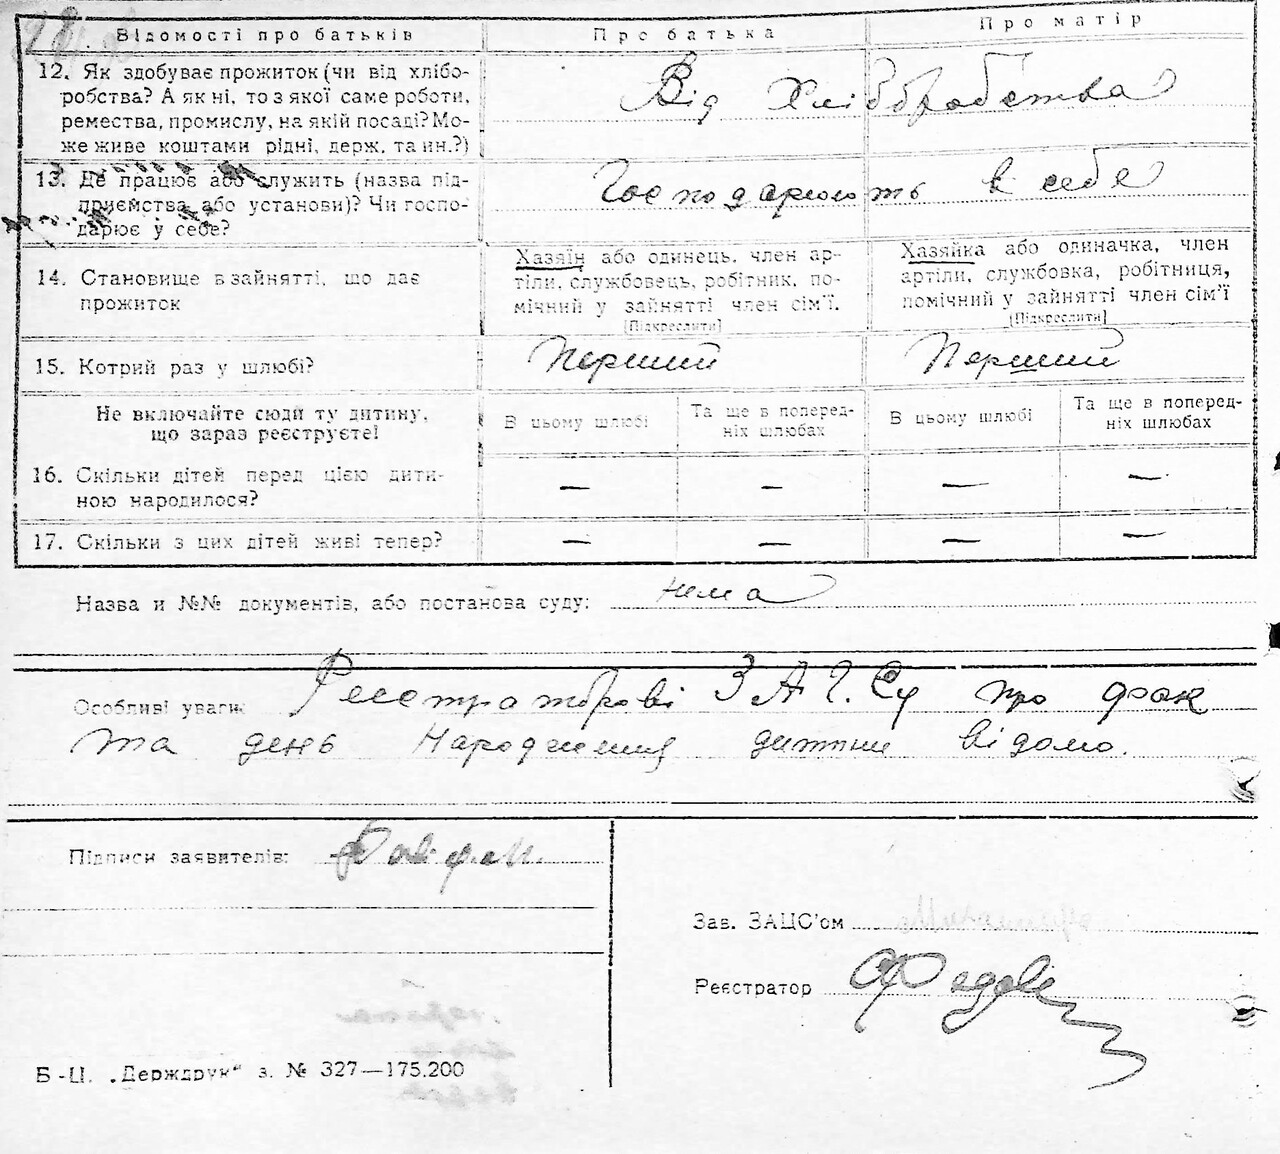 Відомості про батьків
Про батька
Про матір
12. Як здобуває прожиток (чи від хлібо-
робства? А як ні, то з якої саме роботи,
ремества, промислу, на якій посаді? Мо-
же живе коштами рідні, держ. та ин.?)
Від Хліборобства
13. Де працює або служить (назва під-
приємства або установи)? Чи госпо-
дарює у себе?
Господарюють в себе
14. Становище в зайнятті, що дає
прожиток
Хазяїн або одинець, член ар-
тіли, службовець, робітник, по-
мічний у зайнятті член сім'ї.
[Підкреслити]
Хазяйка або одиначка, член
артіли, службовка, робітниця,
помічний у зайнятті член сім'ї
[Підкреслити]
15. Котрий раз у шлюбі?
Перший
Перший
Не включайте сюди ту дитину,
що зараз реєструєте!
В цьому шлюбі
Та ще в поперед-
ніх шлюбах
В цьому шлюбі
Та ще в поперед-
ніх шлюбах
16. Скільки дітей перед цією дити-
ною народилося?
— — — —
17. Скільки з цих дітей живі тепер?
— — — —
Назва и №№ документів, або постанова суду: нема
Особливі уваги: Реєстраторові З.А.Г.Су про фак
та день народження дитини відомо.
Підписи заявителів:
Зав. ЗАЦС'ом
Реєстратор
Б-Ц. „Держдрук" з. № 327—175.200